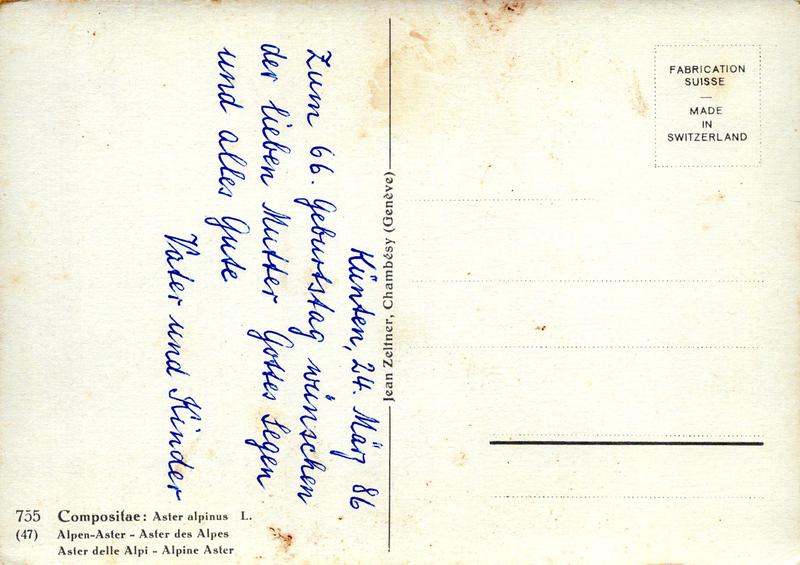 Künten, 24. März 86
Zum 66. Geburtstag wünschen
der lieben Mutter Gottes Segen
und alles Gute
Vater und Kinder
755 Compositae: Aster alpinus L.
(47) Alpen-Aster - Aster des Alpes
Aster delle Alpi - Alpine Aster
Jean Zeltner, Chambésy (Genève)
FABRICATION
SUISSE
—
MADE
IN
SWITZERLAND